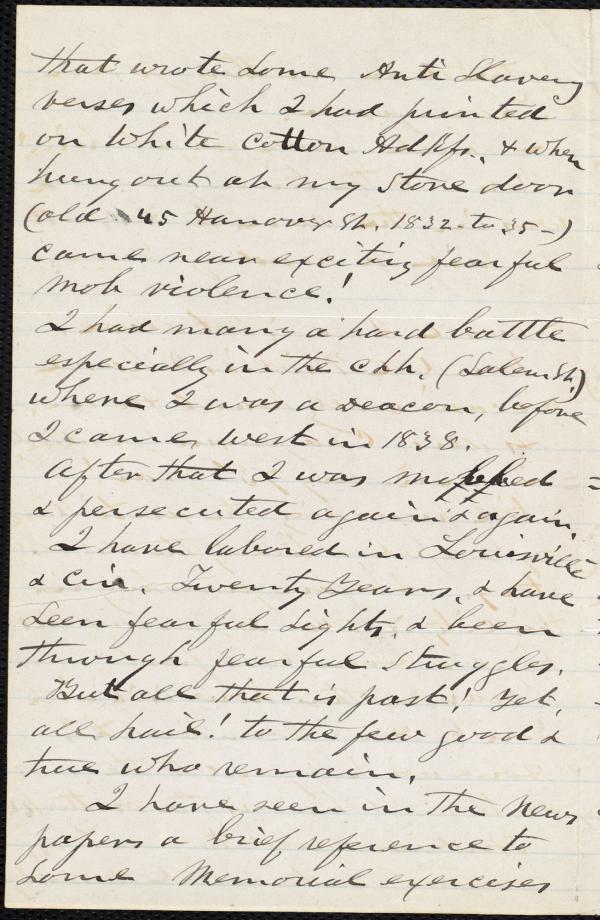 that wrote some Anti Slavery
verses which I had printed
on white cotton Hdkfs., & when
hung out at my store door
(old 45 Hanover St. 1832 to 35-)
came near exciting fearful
mob violence!
I had many a hard battle
especially in the chh. (Salem St.)
where I was a deacon, before
I came west in 1838.
After that I was mobbed
& persecuted again & again
I have labored in Louisville
& Cin. Twenty Years, & have
seen fearful sights, & been
through fearful struggles.
But all that is past! Yet,
all hail! to the few good &
true who remain.
I have seen in the News
papers a brief reference to
some Memorial exercises